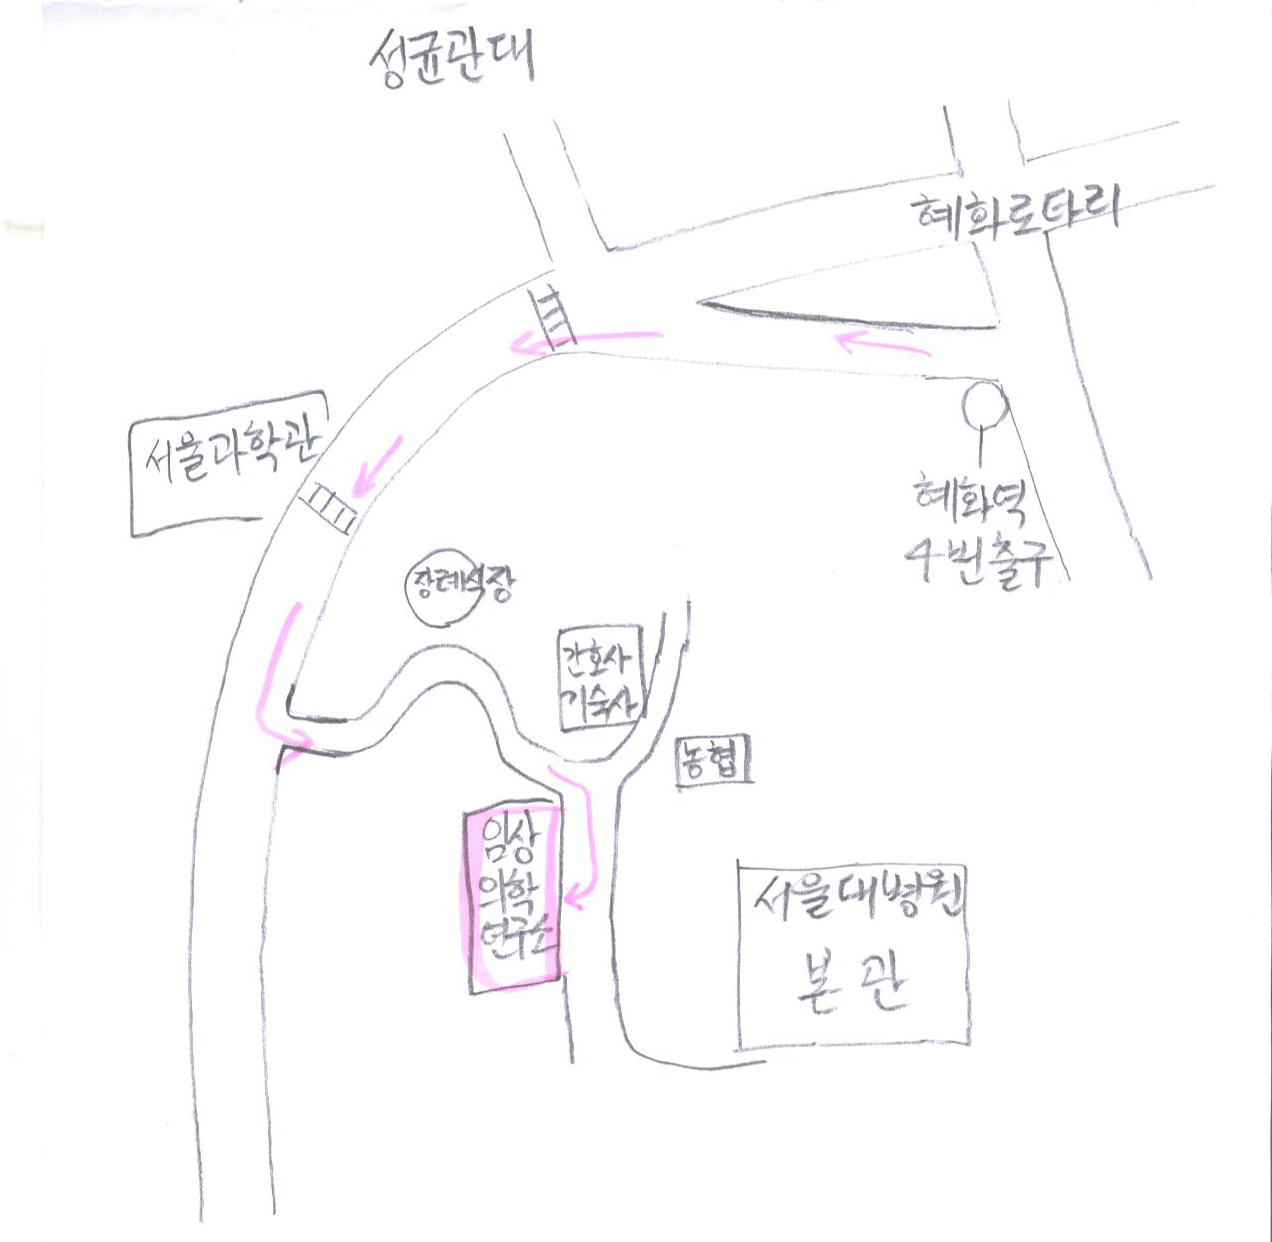 성균관대
혜화로타리
서울과학관
혜화역
4번출구
장례식장
간호사
기숙사
농협
임상
의학
연구소
서울대병원
본관